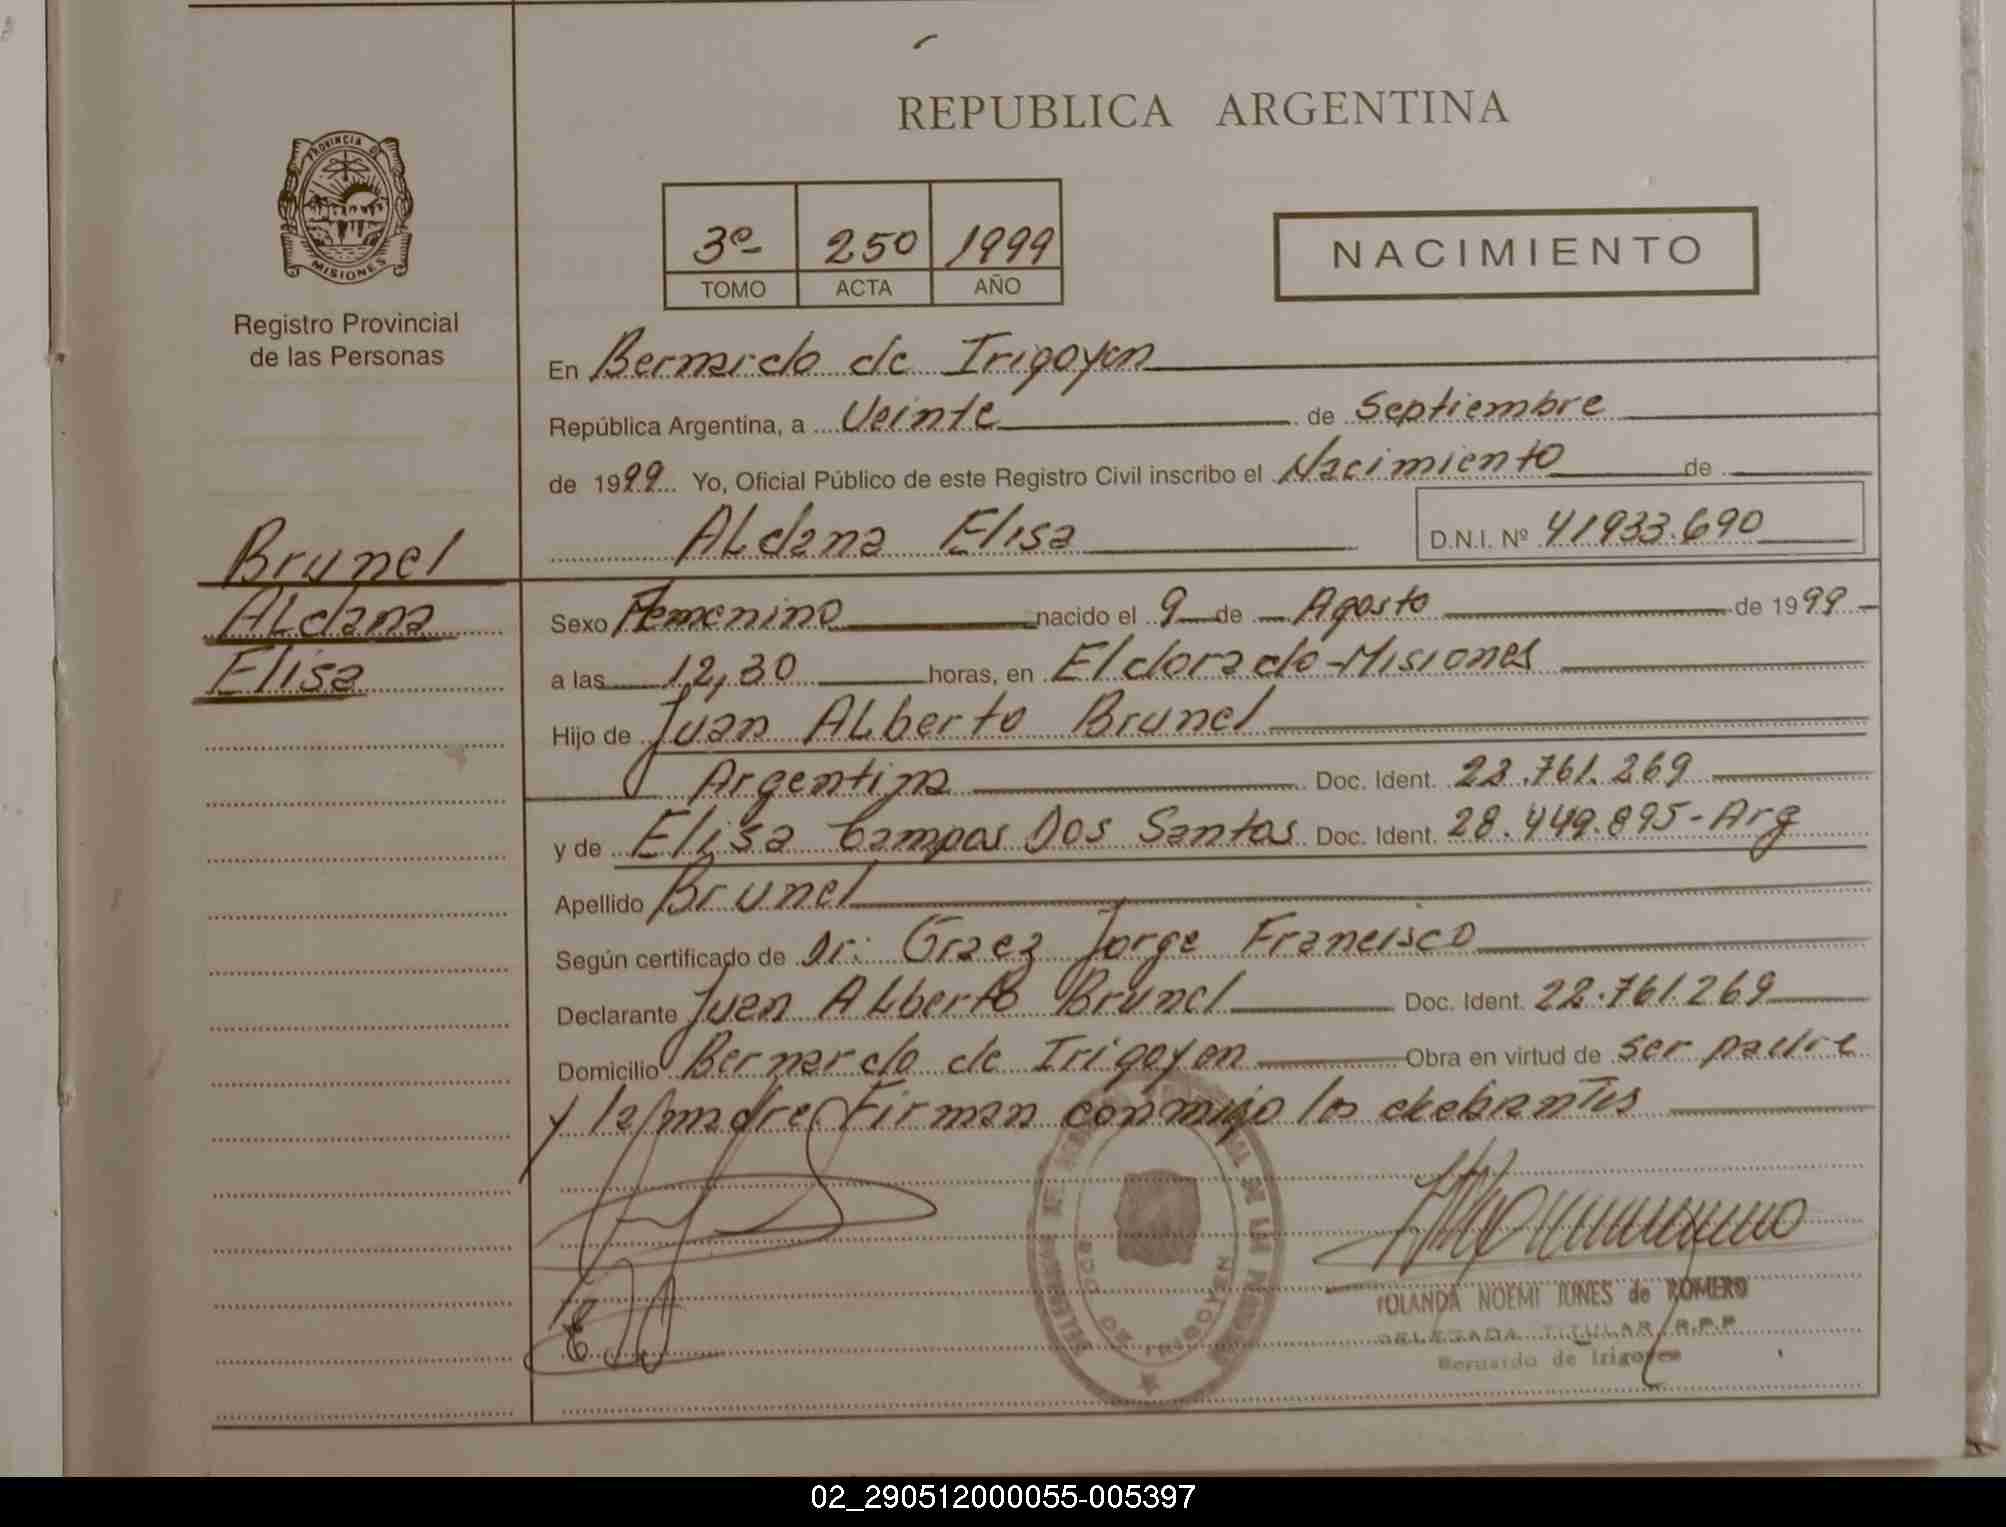 REPUBLICA ARGENTINA
PROVINCIA DE
MISIONES
Registro Provincial
de las Personas
3º 250 1999
TOMO ACTA AÑO
NACIMIENTO
En Bernardo de Irigoyen
República Argentina, a Veinte de Septiembre
de 1999 Yo, Oficial Público de este Registro Civil inscribo el Nacimiento de
Aldana Elisa D.N.I. Nº 41933.690
Brunel
Aldana
Elisa
Sexo Femenino nacido el 9 de Agosto de 1999
a las 12,30 horas, en Eldorado-Misiones
Hijo de Juan Alberto Brunel
Argentina Doc. Ident. 22.761.269
y de Elisa Campos Dos Santos Doc. Ident. 28.449.895-Arg
Apellido Brunel
Según certificado de Dr: Graez Jorge Francisco
Declarante Juan Alberto Brunel Doc. Ident. 22.761.269
Domicilio Bernardo de Irigoyen Obra en virtud de ser padre
y la madre Firman conmigo los
YOLANDA NOEMI JUNES de ROMERO
DELEGADA TITULAR R.P.P
Bernardo de Irigoyen
BDO DE IRIGOYEN
02_290512000055-005397